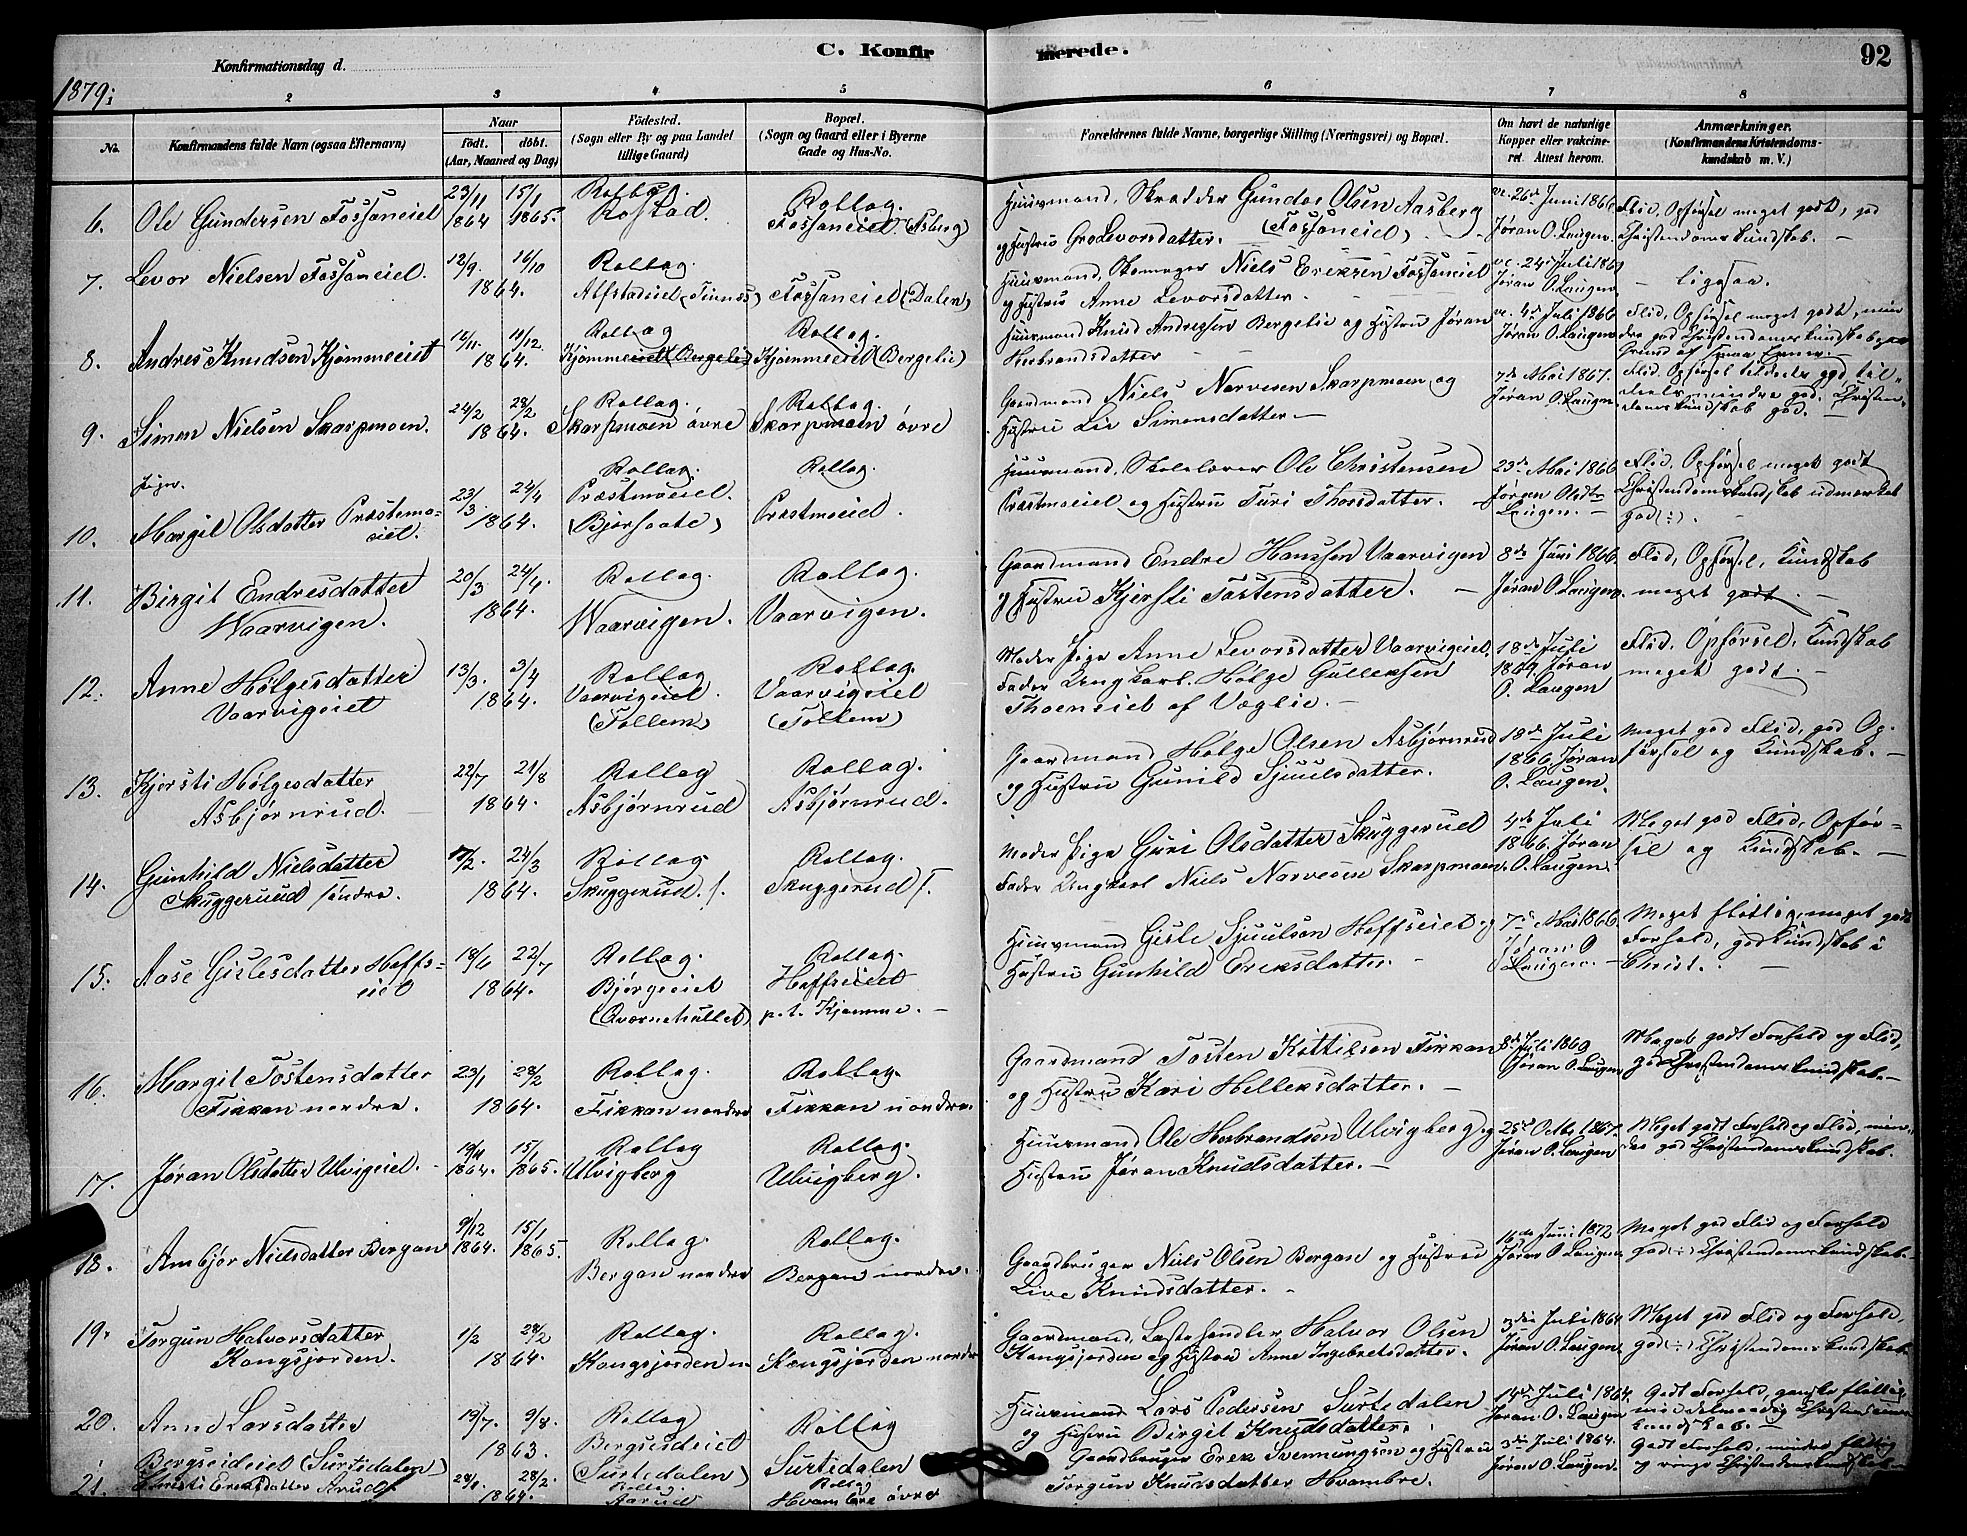 C. Konfirmerede.
92
Konfirmationsdag d.
1879.
2 3 4 5 6 7 8
No.
Konfirmandens fulde Navn (ogsaa Efternavn)
Naar
født. døbt.
(Aar, Maaned og Dag)
Fødested.
(Sogn eller By og paa Landet
tillige Gaard)
Bopæl.
(Sogn og Gaard eller i Byerne
Gade og Hus-No.
Forældrenes fulde Navne, borgerlige Stilling (Næringsvei) og Bopæl.
Om havt de naturlige
Kopper eller vakcine-
ret. Attest herom.
Anmærkninger.
(Konfirmandens Kristendoms-
kundskab m. V.)
6. Ole Gundersen Fossaneiet
23/11 1864 15/1 1865.
Rollag. Rostad.
Rollag. Fossaneiet (Asberg)
Huusmand, Skrædder Gunder Olsen Aasberg
og Hustru Gro Levorsdatter. (Fossaneiet)
vc. 26de Juni 1866
Jøran O. Laugen.
Flid, Opførsel meget godt, god
Christendomskundskab. —
7. Levor Nielsen Fossaneiet.
12/9. 16/10 1864.
Rollag
Alfstadeiet
Fossaneiet (Dalen)
Huusmand, Skomager Niels Eriksen Fossaneiet
og Hustru Anne Levorsdatter. —
Jøran O. Laugen
— ligesaa.
8. Andres Knudsen Kjømmeeiet
11/12. 1864.
Rollag
Kjømmeeiet (Bergelie)
Rollag. Kjømmeeiet (Bergelie)
Huusmand Knud Andresen Bergelie og Hustru Jøran
Herbrandsdatter —
vc. 4de Juli 1866
Jøran O. Laugen.
Flid, Opførsel meget godt, min
dre god Christendomskundskab paa
Grund af smaa Evner. —
9. Simen Nielsen Skarpmoen.
24/2 28/2 1864.
Rollag. Skarpmoen øvre
Rollag. Skarpmoen øvre
Gaardmand Niels Narvesen Skarpmoen og
Hustru Liv Simensdatter. —
7de Mai 1867.
Jøran O. Laugen.
Flid, Opførsel tildeels god, til-
deels mindre god. Christen-
domskundskab god. —
Piger.
10. Margit Olsdatter Præstemo-
eiet.
23/3. 24/4 1864.
Rollag. Præstmoeiet.
Rollag. Præstmoeiet.
Huusmand, Skolelærer Ole Christensen
Præstmoeiet og Hustru Turi Thorsdatter. —
23de Mai 1866
Jøran Olsdtr
Laugen. —
Flid, Opførsel meget godt
Christendomskundskab udmærket
god (÷). —
11. Birgit Endresdatter
Waarvigen.
20/3 24/4. 1864.
Rollag. Waarvigen.
Rollag. Vaarvigen.
Gaardmand Endre Hanssen Vaarvigen
og Hustru Kjersti Tostensdatter. —
8de Juni 1866.
Jøran O. Laugen.
Flid, Opførsel, Kundskab
meget godt. —
12. Anne Hølgesdatter
Vaarvigeiet
13/3. 3/4 1864.
Rollag. Vaarvigeiet. (Tollem)
Rollag. Vaarvigeiet (Tollem)
Moder Pige Anne Levorsdatter Vaarvigeiet.
Fader Ungkarl. Hølge Gulleksen
Thoeneiet af Væglie. —
18de Juli
1869 Jøran
O. Laugen
Flid, Opførsel, Kundskab
meget godt —
13. Kjersti Hølgesdatter
Asbjørnrud.
22/7 21/8 1864.
Rollag Asbjørnrud
Rollag. Asbjørnrud.
Gaardmand Hølge Olsen Asbjørnrud
og Hustru Gunild Sjuulsdatter.
18de Juli
1866, Jøran
O. Laugen.
Meget god Flid, god Op-
førsel og Kundskab. —
14. Gunhild Nielsdatter
Skuggerud søndre.
24/3 1864.
Rollag Skuggerud. s.
Rollag. Skuggerud s.
Moder Pige Guri Olsdatter Skuggerud
Fader Ungkarl Niels Narvesen Skarpmoen.
4de Juli
1866. Jøran
O. Laugen.
Meget god Flid, Opfør-
sel og Kundskab. —
15. Aase Gislesdatter Hoffs-
eiet
18/6 22/7 1864.
Rollag. Bjørgeeiet (Qværnehullet)
Rollag. Hoffseiet p.t. Kjømme. —
Huusmand Gisle Sjuulsen Hoffseiet og
Hustru Gunhild Eriksdatter. —
7de Mai 1866
Jøran O
Laugen. —
Meget flittig, meget godt
Forhold, god Kundskab i
Christ. —
16. Margit Tostensdatter
Fikkan nordre.
23/1 28/2 1864.
Rollag. Fikkan nordre
Rollag. Fikkan nordre.
Gaardmand Tosten Kittilsen Fikkan
og Hustru Kari Helleksdatter. —
8de Juli 1869
Jøran O. Laugen
Meget godt Forhold og Flid,
god Christendomskundskab. —
17. Jøran Olsdatter Ulvigeiet. —
1864. 15/1 1865.
Rollag Ulvigberg
Rollag. Ulvigberg.
Huusmand Ole Herbrandsen Ulvigberg og
Hustru Jøran Knudsdatter. —
25de Octbr 1867.
Jøran O. Laugen
Meget godt Forhold og Flid, min-
dre god Christendomskundskab.
18. Ambjør Nielsdatter Bergan
9/12 1864. 15/1 1865.
Rollag. Bergan nordre
Rollag. Bergan nordre.
Gaardbruger Niels Olsen Bergan og Hustru
Live Knudsdatter. —
16de Juni 1872
Jøran O. Laugen
Meget god Flid og Forhold
god (÷) Christendomskundskab.
19. Torgun Halvorsdatter
Kongsjorden.
1/2 28/2 1864.
Rollag. Kongsjorden n.
Rollag. Kongsjorden nordre
Gaardmand, Lastehandler Halvor Olsen
Kongsjorden og Hustru Anne Ingebretsdatter.
3die Juli 1864
Jøran O. Laugen.
Meget god Flid og Forhold,
god (÷) Christendomskundskab.
20. Anne Larsdatter
Bergseideiet (Surtedalen)
19/7. 9/8. 1863.
Rollag Bergseideiet (Surtedalen)
Rollag Surtedalen
Huusmand Lars Pedersen Surtedalen
og Hustru Birgit Knudsdatter.
14de Juli 1864.
Jøran O. Laugen
Godt Forhold, ganske flittig,
middelmaadig Christendoms-
kundskab. —
21. Eriksdatter Aarud
28/2. 1864.
Rollag. Aarud
Rollag Hvambre øvre
Gaardbruger Erik Svennungsen og Hustru
Torgun Knudsdatter Hvambre.
3die Juli 1864.
Jøran O. Laugen.
Godt Forhold, mindre flittig
og ringe Christendomskundskab. —